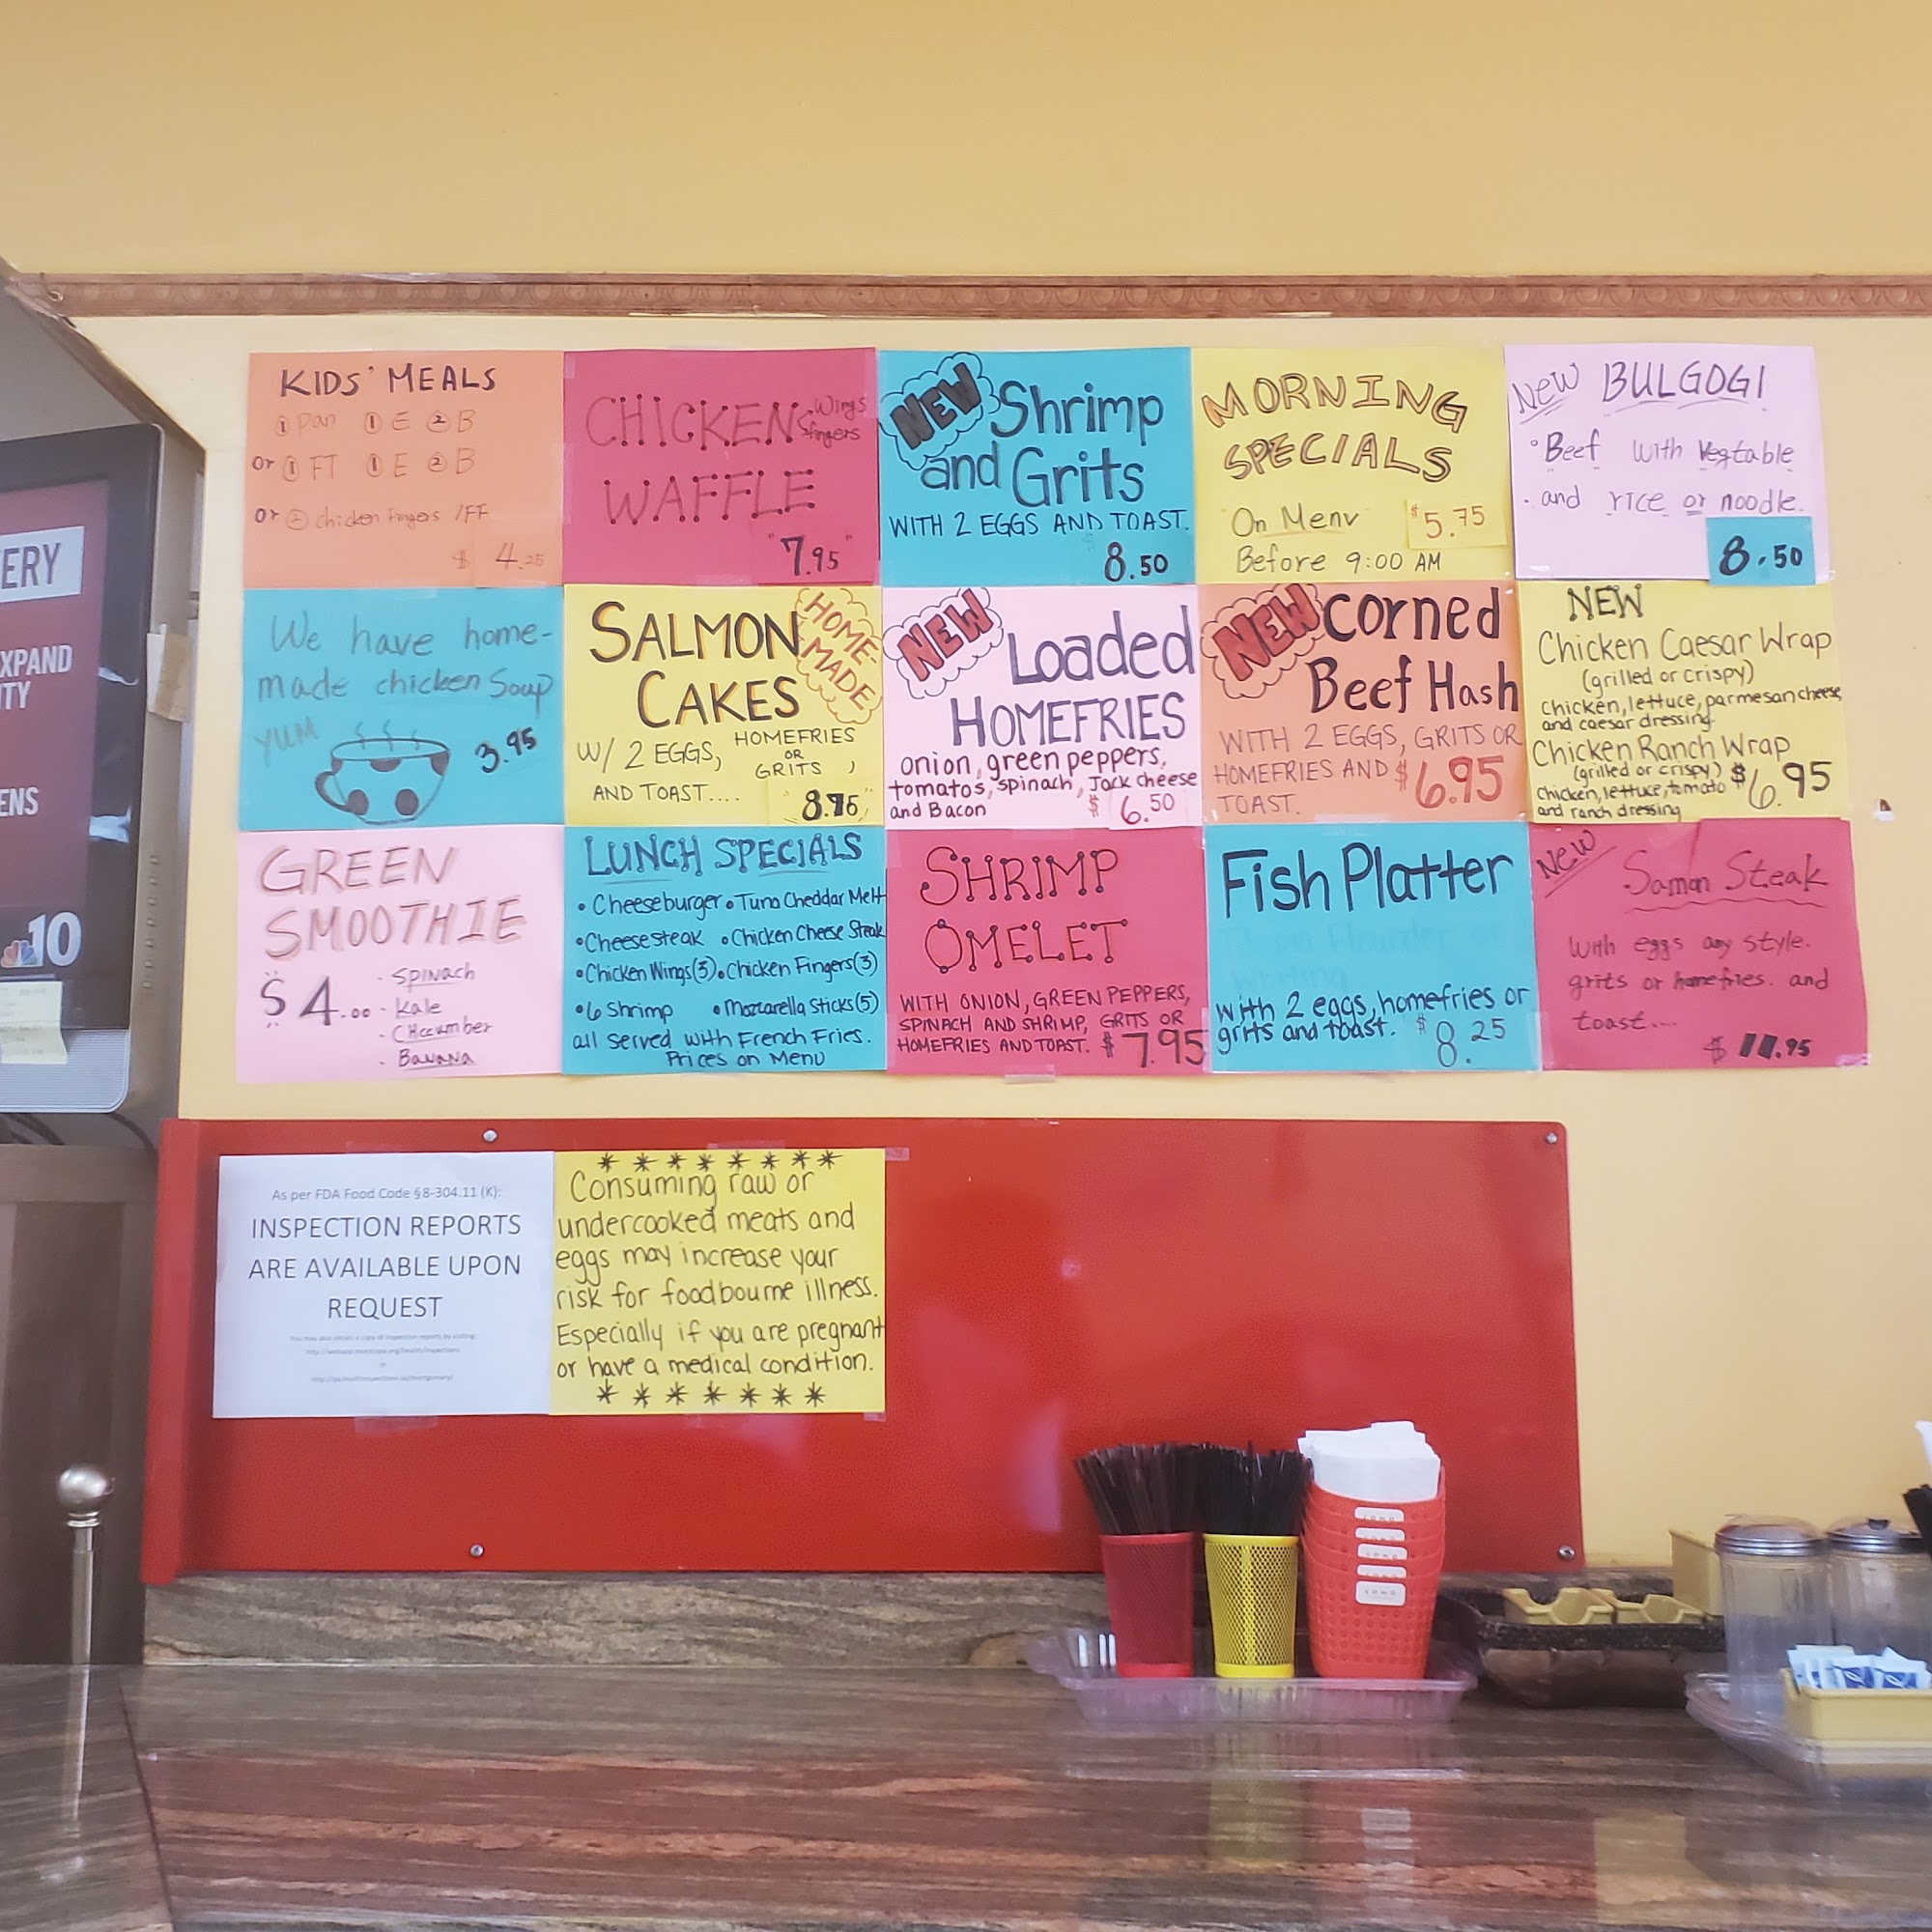 KIDS' MEALS
① Pan ① E ② B
or ① FT ① E ② B
or ② chicken Fingers /FF
$ 4.25
CHICKEN Wings
Fingers
WAFFLE
"7.95"
NEW Shrimp
and Grits
WITH 2 EGGS AND TOAST.
8.50
MORNING
SPECIALS
On Menu $5.75
Before 9:00 AM
New BULGOGI
• Beef with Vegtable
• and rice or noodle.
8.50
We have home-
made chicken Soup
YUM
3.95
SALMON HOME-
MADE
CAKES
W/ 2 EGGS, HOMEFRIES
OR
GRITS ,
AND TOAST....
NEW Loaded
HOMEFRIES
onion, green peppers,
tomatos, spinach, Jack cheese
and Bacon $ 6.50
NEW corned
Beef Hash
WITH 2 EGGS, GRITS OR
HOMEFRIES AND $6.95
TOAST.
NEW
Chicken Caesar Wrap
(grilled or crispy)
chicken, lettuce, parmesan cheese,
and caesar dressing.
Chicken Ranch Wrap
(grilled or crispy) $6.95
chicken, lettuce, tomato
and ranch dressing
GREEN
SMOOTHIE
$4.00
- SPINACH
- Kale
- CHccumber
- Banana
LUNCH SPECIALS
• Cheeseburger • Tuna Cheddar Melt
• Cheesesteak • Chicken Cheese Steak
• Chicken Wings(3) • Chicken Fingers(3)
• 6 Shrimp • Mozarella Sticks(5)
all served with French Fries.
Prices on Menu
SHRIMP
OMELET
WITH ONION, GREEN PEPPERS,
SPINACH AND SHRIMP, GRITS OR
HOMEFRIES AND TOAST. $7.95
Fish Platter
with 2 eggs, homefries or
grits and toast. $8.25
New
Samon Steak
with eggs any style.
grits or homefries. and
toast...
$ 11.95
ERY
XPAND
ITY
ENS
10
As per FDA Food Code §8-304.11 (K):
INSPECTION REPORTS
ARE AVAILABLE UPON
REQUEST
You may also obtain a copy of inspection reports by visiting:
or
* * * * * * *
Consuming raw or
undercooked meats and
eggs may increase your
risk for foodbourne illness.
Especially if you are pregnant
or have a medical condition.
* * * * * * *